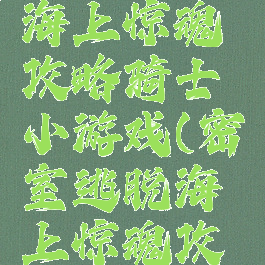 海上惊魂
攻略骑士
小游戏(密
室逃脱海
上惊魂攻